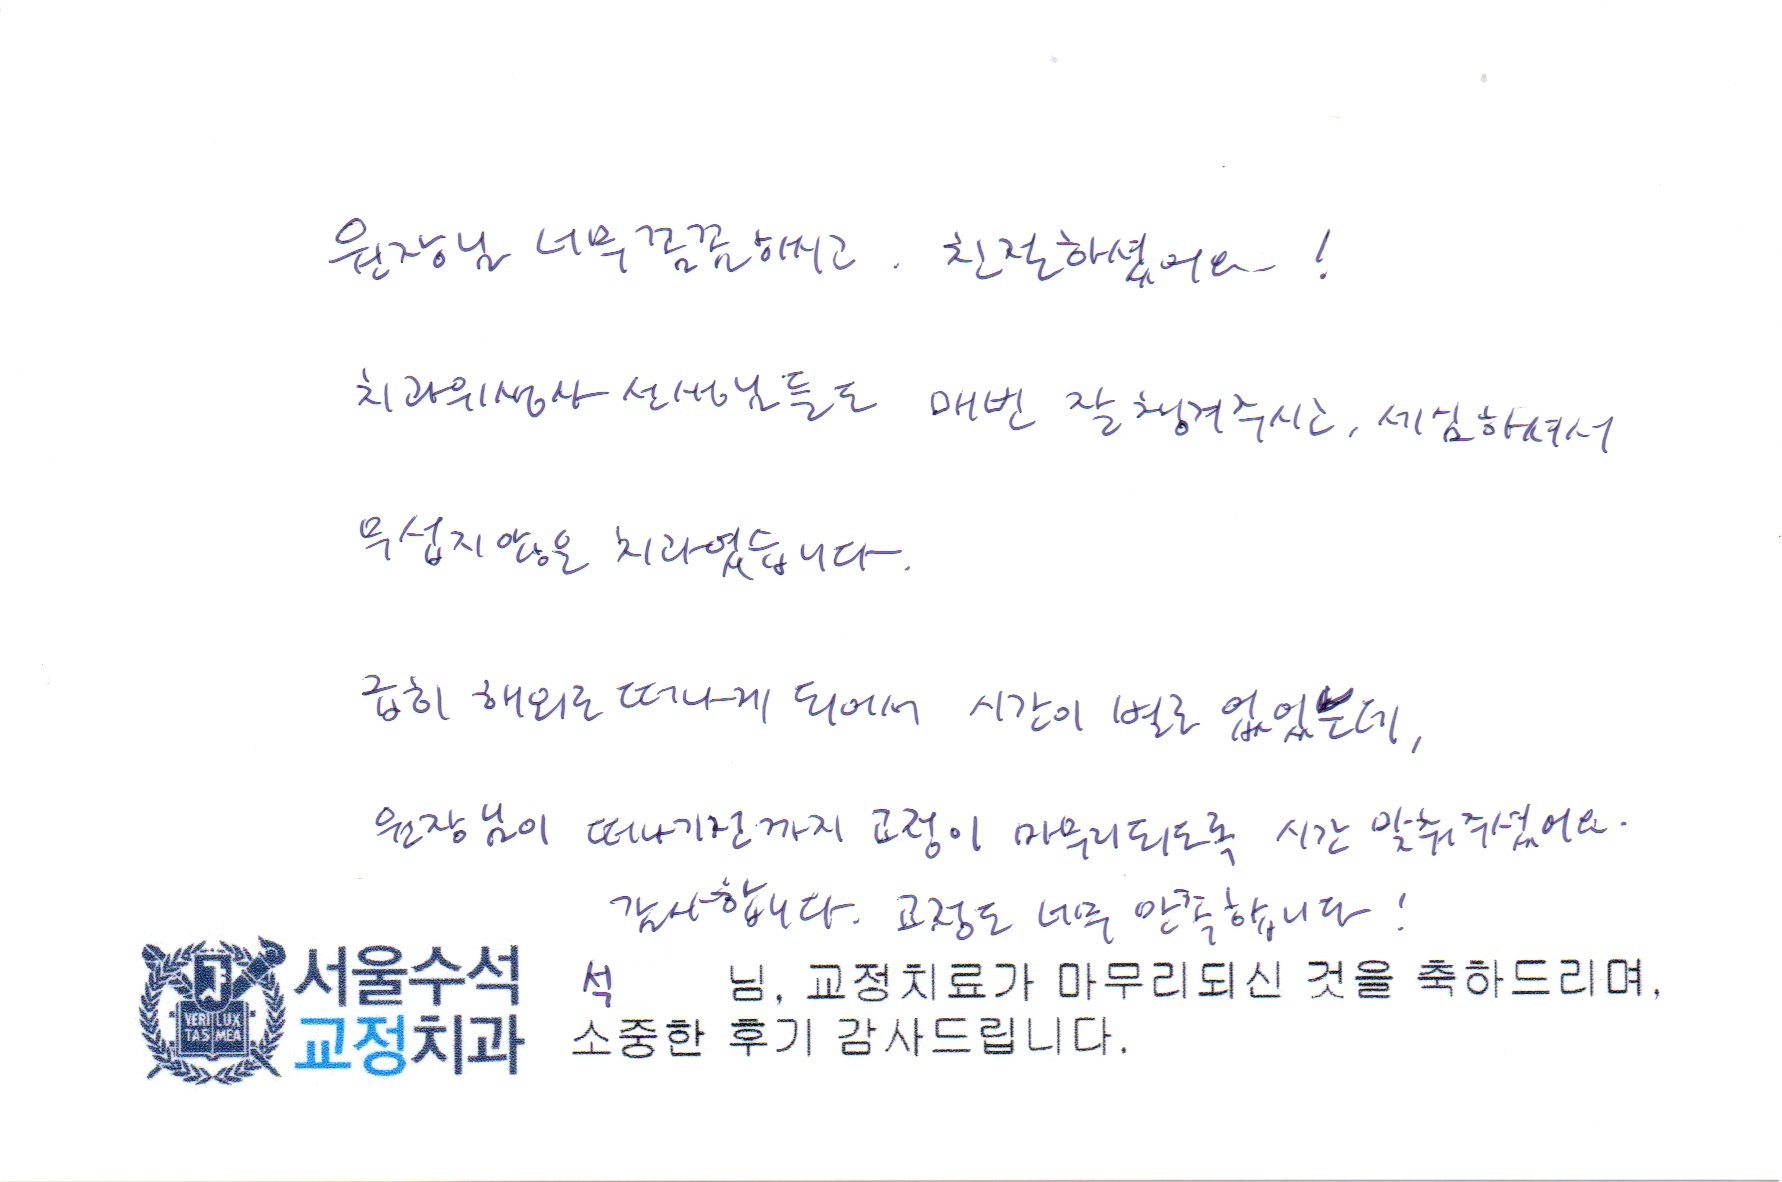 원장님 너무 꼼꼼하시고, 친절하셨어요 !
치과위생사 선생님들도 매번 잘 챙겨주시고, 세심하셔서
무섭지 않은 치과였습니다.
급히 해외로 떠나게 되어서 시간이 별로 없었는데,
원장님이 떠나기전까지 교정이 마무리되도록 시간 맞춰주셨어요.
감사합니다. 교정도 너무 만족합니다 !
서울수석 교정치과
VERI LUX TAS MEA
석 님, 교정치료가 마무리되신 것을 축하드리며,
소중한 후기 감사드립니다.